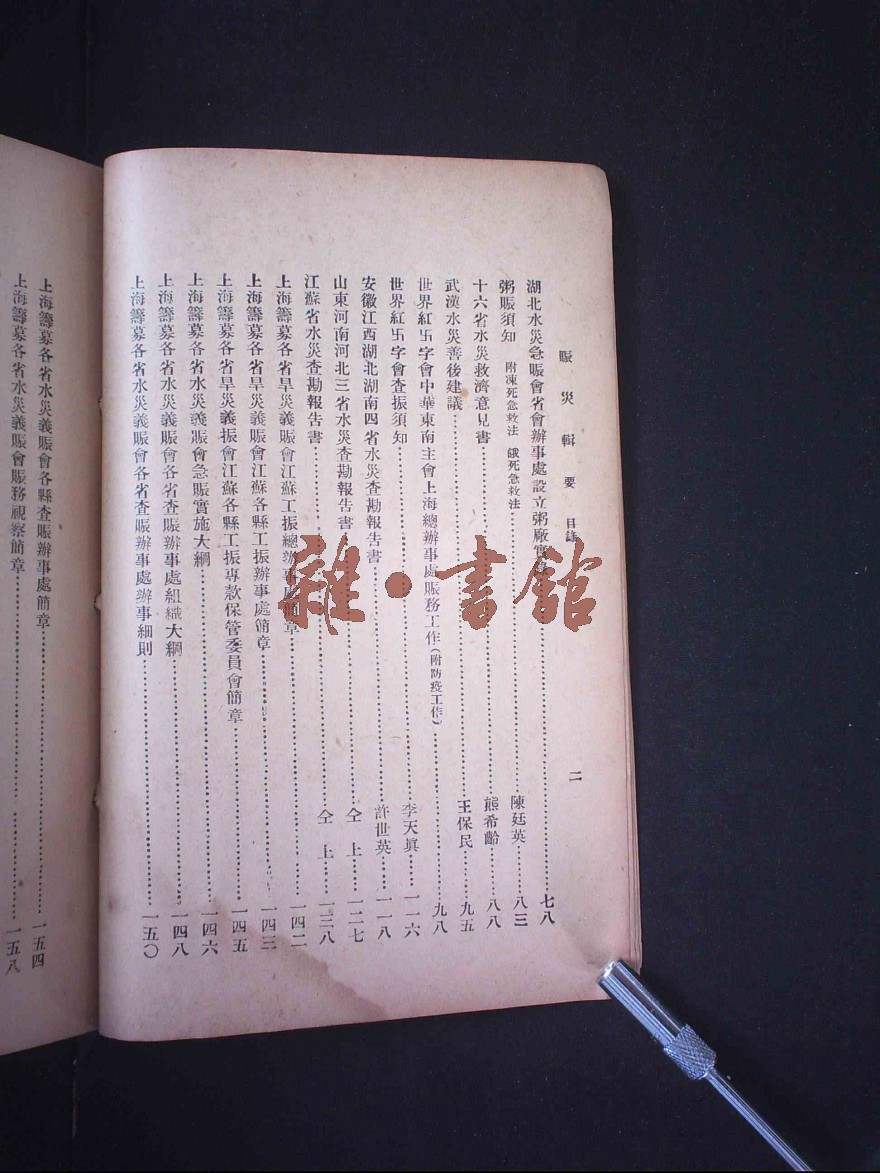 賑災輯要 目錄 二
湖北水災急賑會省會辦事處設立粥廠實……七八
粥賑須知 附凍死急救法 餓死急救法……陳廷英……八三
十六省水災救濟意見書……熊希齡……八八
武漢水災善後建議……王保民……九五
世界紅卍字會中華東南主會上海總辦事處賑務工作(附防疫工作)……九八
世界紅卍字會查振須知……李天眞……一一六
安徽江西湖北湖南四省水災查勘報告書……許世英……一一八
山東河南河北三省水災查勘報告書……仝上……一二七
江蘇省水災查勘報告書……仝上……一三八
上海籌募各省旱災義賑會江蘇工振總辦事處簡章……一四二
上海籌募各省旱災義賑會江蘇各縣工振辦事處簡章……一四三
上海籌募各省旱災義振會江蘇各縣工振專款保管委員會簡章……一四五
上海籌募各省水災義賑會急賑實施大綱……一四六
上海籌募各省水災義賑會各省查賑辦事處組織大綱……一四八
上海籌募各省水災義賑會各省查賑辦事處辦事細則……一五〇
上海籌募各省水災義賑會各縣查賑辦事處簡章……一五四
上海籌募各省水災義賑會賑務視察簡章……一五八
雜·書館